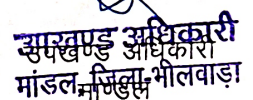 उपखण्ड अधिकारी
उपखण्ड अधिकारी
मांडल, जिला-भीलवाड़ा
माण्डल